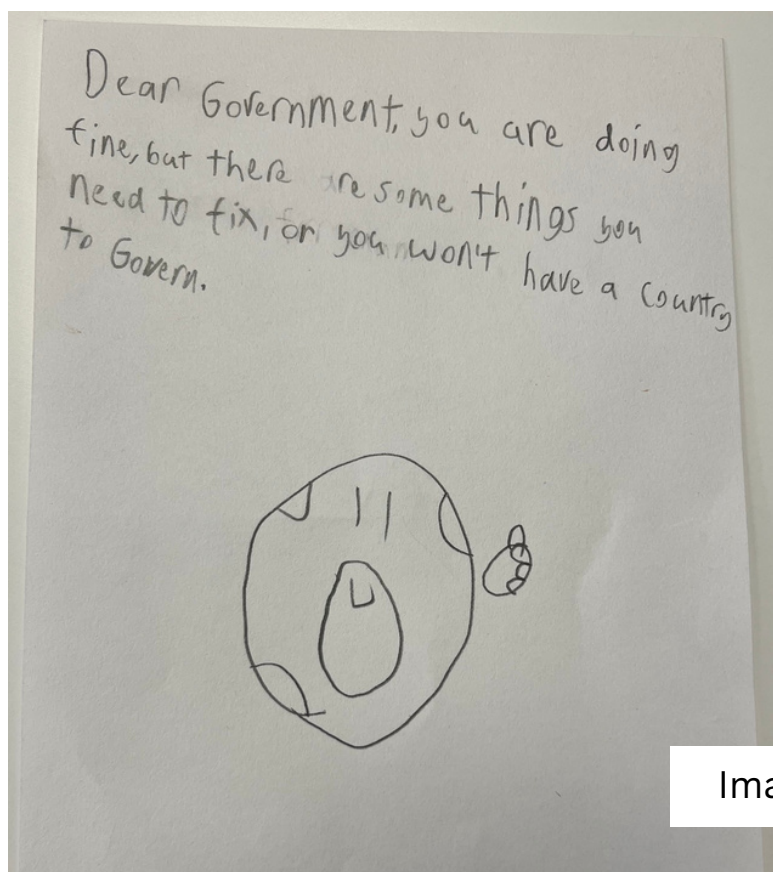 Dear Government, you are doing
fine, but there are some things you
need to fix, or you won't have a country
to Govern.
Ima